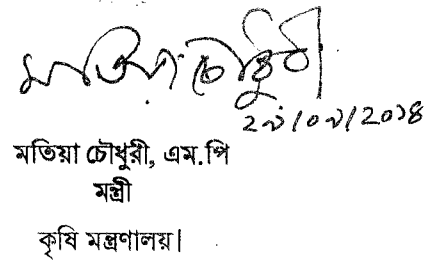 মতিয়া চৌধুরী
২৯/০৯/২০১৪
মতিয়া চৌধুরী, এম.পি
মন্ত্রী
কৃষি মন্ত্রণালয়।